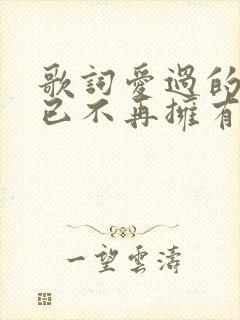 歌詞愛過的
已不再擁有
一望雲濤